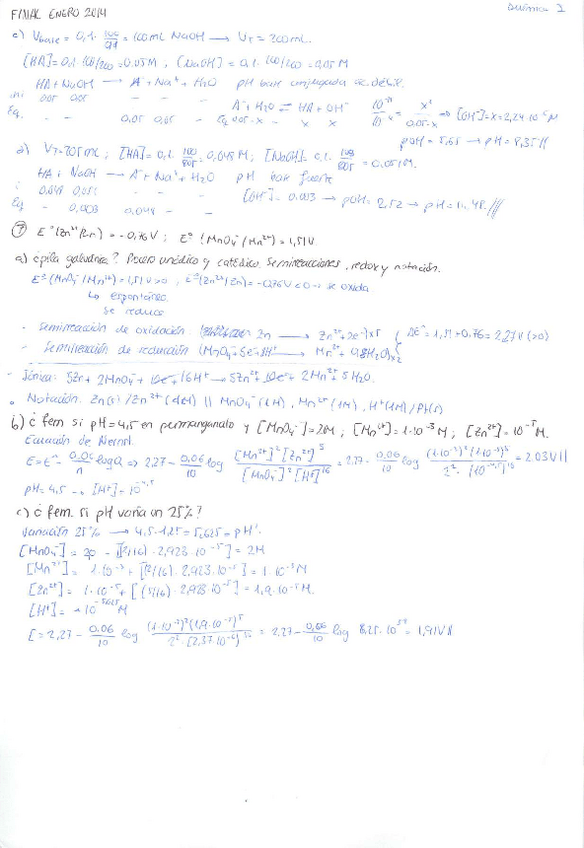 FINAL ENERO 2014
Química I
c) Vbase = 0,1 · 100/0,1 = 100mL NaOH → VT = 200mL.
[HA] = 0,1 · 100/200 = 0,05M ; [NaOH] = 0,1 · 100/200 = 0,05M
HA + NaOH → A⁻ + Na⁺ + H₂O pH base conjugada ac. débil.
0,05 0,05 - - -
A⁻ + H₂O ⇌ HA + OH⁻
Eq. - - 0,05 0,05 - Eq 0,05-x - x x
x²/0,05-x ⇒ [OH⁻] = x = 2,24·10⁻⁶M
pOH = 5,65 → pH = 8,35//
d) VT = 205mL ; [HA] = 0,1 · 100/205 = 0,048M ; [NaOH] = 0,1 · /205 = 0,051M.
HA + NaOH → A⁻ + Na⁺ + H₂O pH base fuerte
0,048 0,051 - - -
[OH⁻] = 0,003 → pOH = 2,52 → pH = 11,48 //
Eq - 0,003 0,048 - -
7 Eº (Zn²⁺/Zn) = -0,76V ; Eº (MnO₄⁻/Mn²⁺) = 1,51V.
a) ¿pila galvánica? Proceso anódico y catódico. Semirreacciones, redox y notación.
Eº (MnO₄⁻/Mn²⁺) = 1,51V > 0 ; Eº (Zn²⁺/Zn) = -0,76V < 0 → se oxida
↳ espontáneo
se reduce
- Semirreacción de oxidación: Zn → Zn²⁺ + 2e⁻) x5
ΔEº = 1,51 + 0,76 = 2,27V (>0)
- Semirreacción de reducción: (MnO₄⁻ + 5e⁻ + 8H⁺ → Mn²⁺ + 4H₂O) x2
- Iónica: 5Zn + 2MnO₄⁻ + 10e⁻ + 16H⁺ → 5Zn²⁺ + 10e⁻ + 2Mn²⁺ + 8H₂O.
• Notación: Zn(s) / Zn²⁺ (1M) || MnO₄⁻ (1M), Mn²⁺ (1M), H⁺ (1M) / Pt(s)
b) ¿ fem si pH = 4,5 en permanganato y [MnO₄⁻] = 2M ; [Mn²⁺] = 1·10⁻³M ; [Zn²⁺] = 10⁻⁵M.
Ecuación de Nernst.
E = Eº - 0,06/n log Q ⇒ 2,27 - 0,06/10 log [Mn²⁺]²[Zn²⁺]⁵/[MnO₄⁻]²[H⁺]¹⁶ = 2,27 - 0,06/10 log (1·10⁻³)²(1·10⁻⁵)⁵/2²·(10⁻⁴·⁵)¹⁶ = 2,03V //
pH = 4,5 → [H⁺] = 10⁻⁴·⁵
c) ¿ fem. si pH varía un 25%?
Variación 25% → 4,5·1,25 = 5,625 = pH'.
[MnO₄⁻] = - [(2/16)·2,923·10⁻⁵] = 2M
[Mn²⁺] = 1·10⁻³ + [(2/16)·2,923·10⁻⁵] = 1·10⁻³M
[Zn²⁺] = 1·10⁻⁵ + [(5/16)·2,923·10⁻⁵] = 1,9·10⁻⁵M.
[H⁺] = 10⁻⁵·⁶²⁵M
E = 2,27 - 0,06/10 log (1·10⁻³)²(1,9·10⁻⁵)⁵/2²·(2,37·10⁻⁶)¹⁶ = 2,27 - 0,06/10 log = 1,91V //